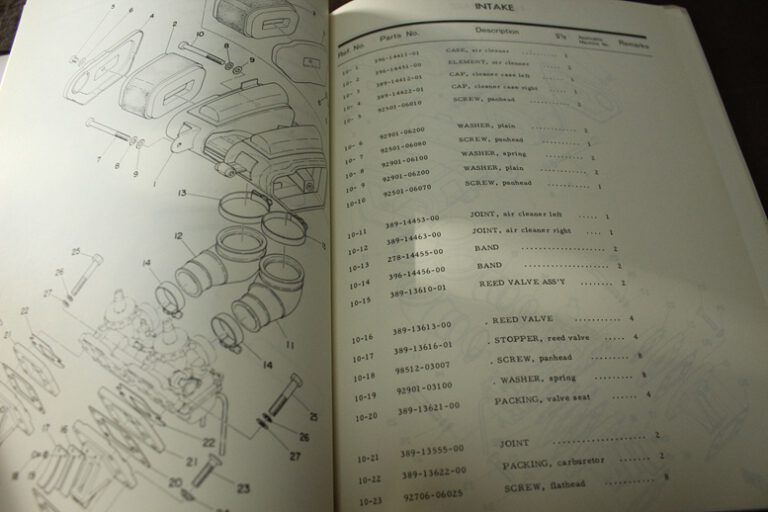 INTAKE
Ref. No. Parts No. Description Remarks
10- 1 396-14411-01 CASE, air cleaner 1
10- 2 396-14451-00 ELEMENT, air cleaner 2
10- 3 389-14412-01 CAP, cleaner case left 1
10- 4 389-14422-01 CAP, cleaner case right 1
10- 5 92501-06010 SCREW, panhead 2
10- 6 92901-06200 WASHER, plain 2
10- 7 92501-06080 SCREW, panhead 1
10- 8 92901-06100 WASHER, spring 2
10- 9 92901-06200 WASHER, plain 2
10-10 92501-06070 SCREW, panhead 1
10-11 389-14453-00 JOINT, air cleaner left 1
10-12 389-14463-00 JOINT, air cleaner right 1
10-13 278-14455-00 BAND 2
10-14 396-14456-00 BAND 2
10-15 389-13610-01 REED VALVE ASS'Y 2
10-16 389-13613-00 . REED VALVE 4
10-17 389-13616-01 . STOPPER, reed valve 4
10-18 98512-03007 . SCREW, panhead 8
10-19 92901-03100 . WASHER, spring 8
10-20 389-13621-00 PACKING, valve seat 4
10-21 389-13555-00 JOINT 2
10-22 389-13622-00 PACKING, carburetor 2
10-23 92706-06025 SCREW, flathead 8
5
6
4
2
10
8
9
7
8
9
1
13
12
14
25
26
27
11
14
21
22
25
26
27
22
21
20
23
17
18
19